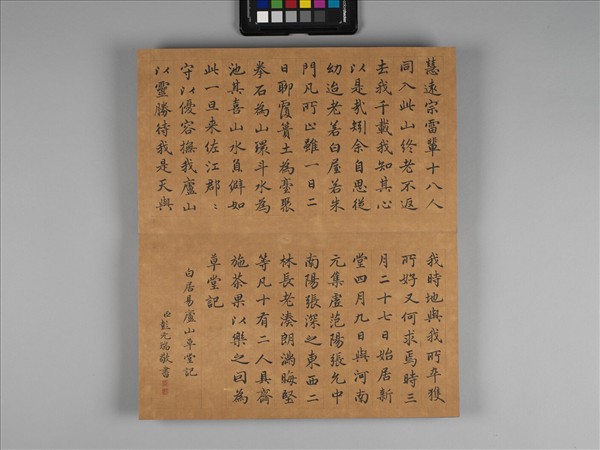 慧遠宗雷輩十八人
同入此山終老不返
去我千載我知其心
以是哉矧余自思從
幼迨老若白屋若朱
門凡所止雖一日二
日聊覆簣土為臺聚
拳石為山環斗水為
池其喜山水負僻如
此一旦来佐江郡〻
守以優容撫我廬山
以靈勝待我是天與
我時地與我所卒獲
所好又何求焉時三
月二十七日始居新
堂四月九日與河南
元集虛范陽張允中
南陽張深之東西二
林長老湊朗滿晦堅
等凡十有二人具齋
施茶果以樂之因為
草堂記
白居易廬山草堂記
臣彭元瑞敬書